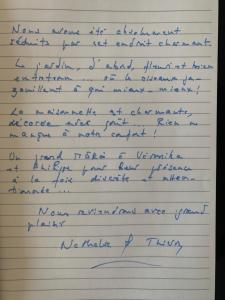 Nous avons été absolument
séduits par cet endroit charmant.
Le jardin, d'abord, fleuri et bien
entretenu ... où les oiseaux ga-
zouillent à qui mieux-mieux!
La maisonnette est charmante,
décorée avec goût. Rien ne
manque à notre confort!
Un grand MERCI à Véronika
et Philippe pour leur présence
à la fois discrète et atten-
tionnée!...
Nous reviendrons avec grand
plaisir
Nathalie & Thierry